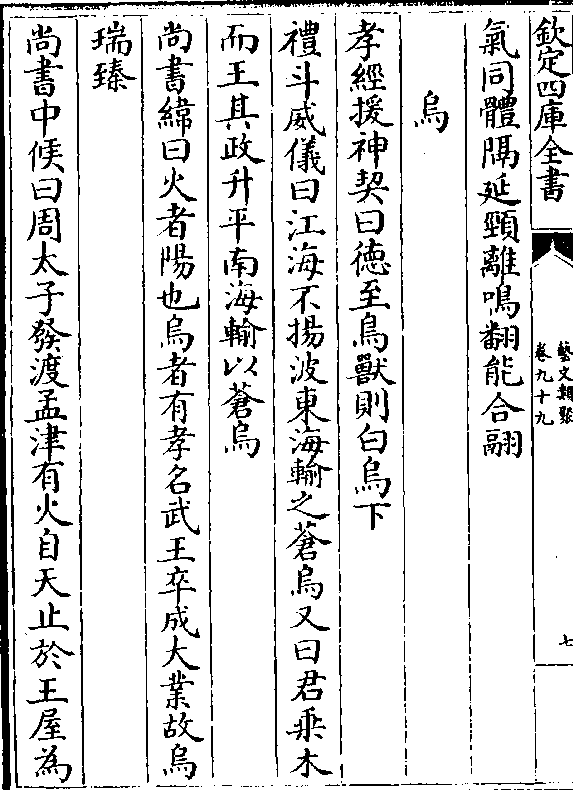 欽定四庫全書
藝文類聚
卷九十九
七
氣同體隔延頸離鳴翻能合翮
烏
孝經援神契曰徳至鳥獸則白烏下
禮斗威儀曰江海不揚波東海輸之蒼烏又曰君乗木
而王其政升平南海輸以蒼烏
尚書緯曰火者陽也烏者有孝名武王卒成大業故烏
瑞臻
尚書中候曰周太子發渡孟津有火自天止於王屋為